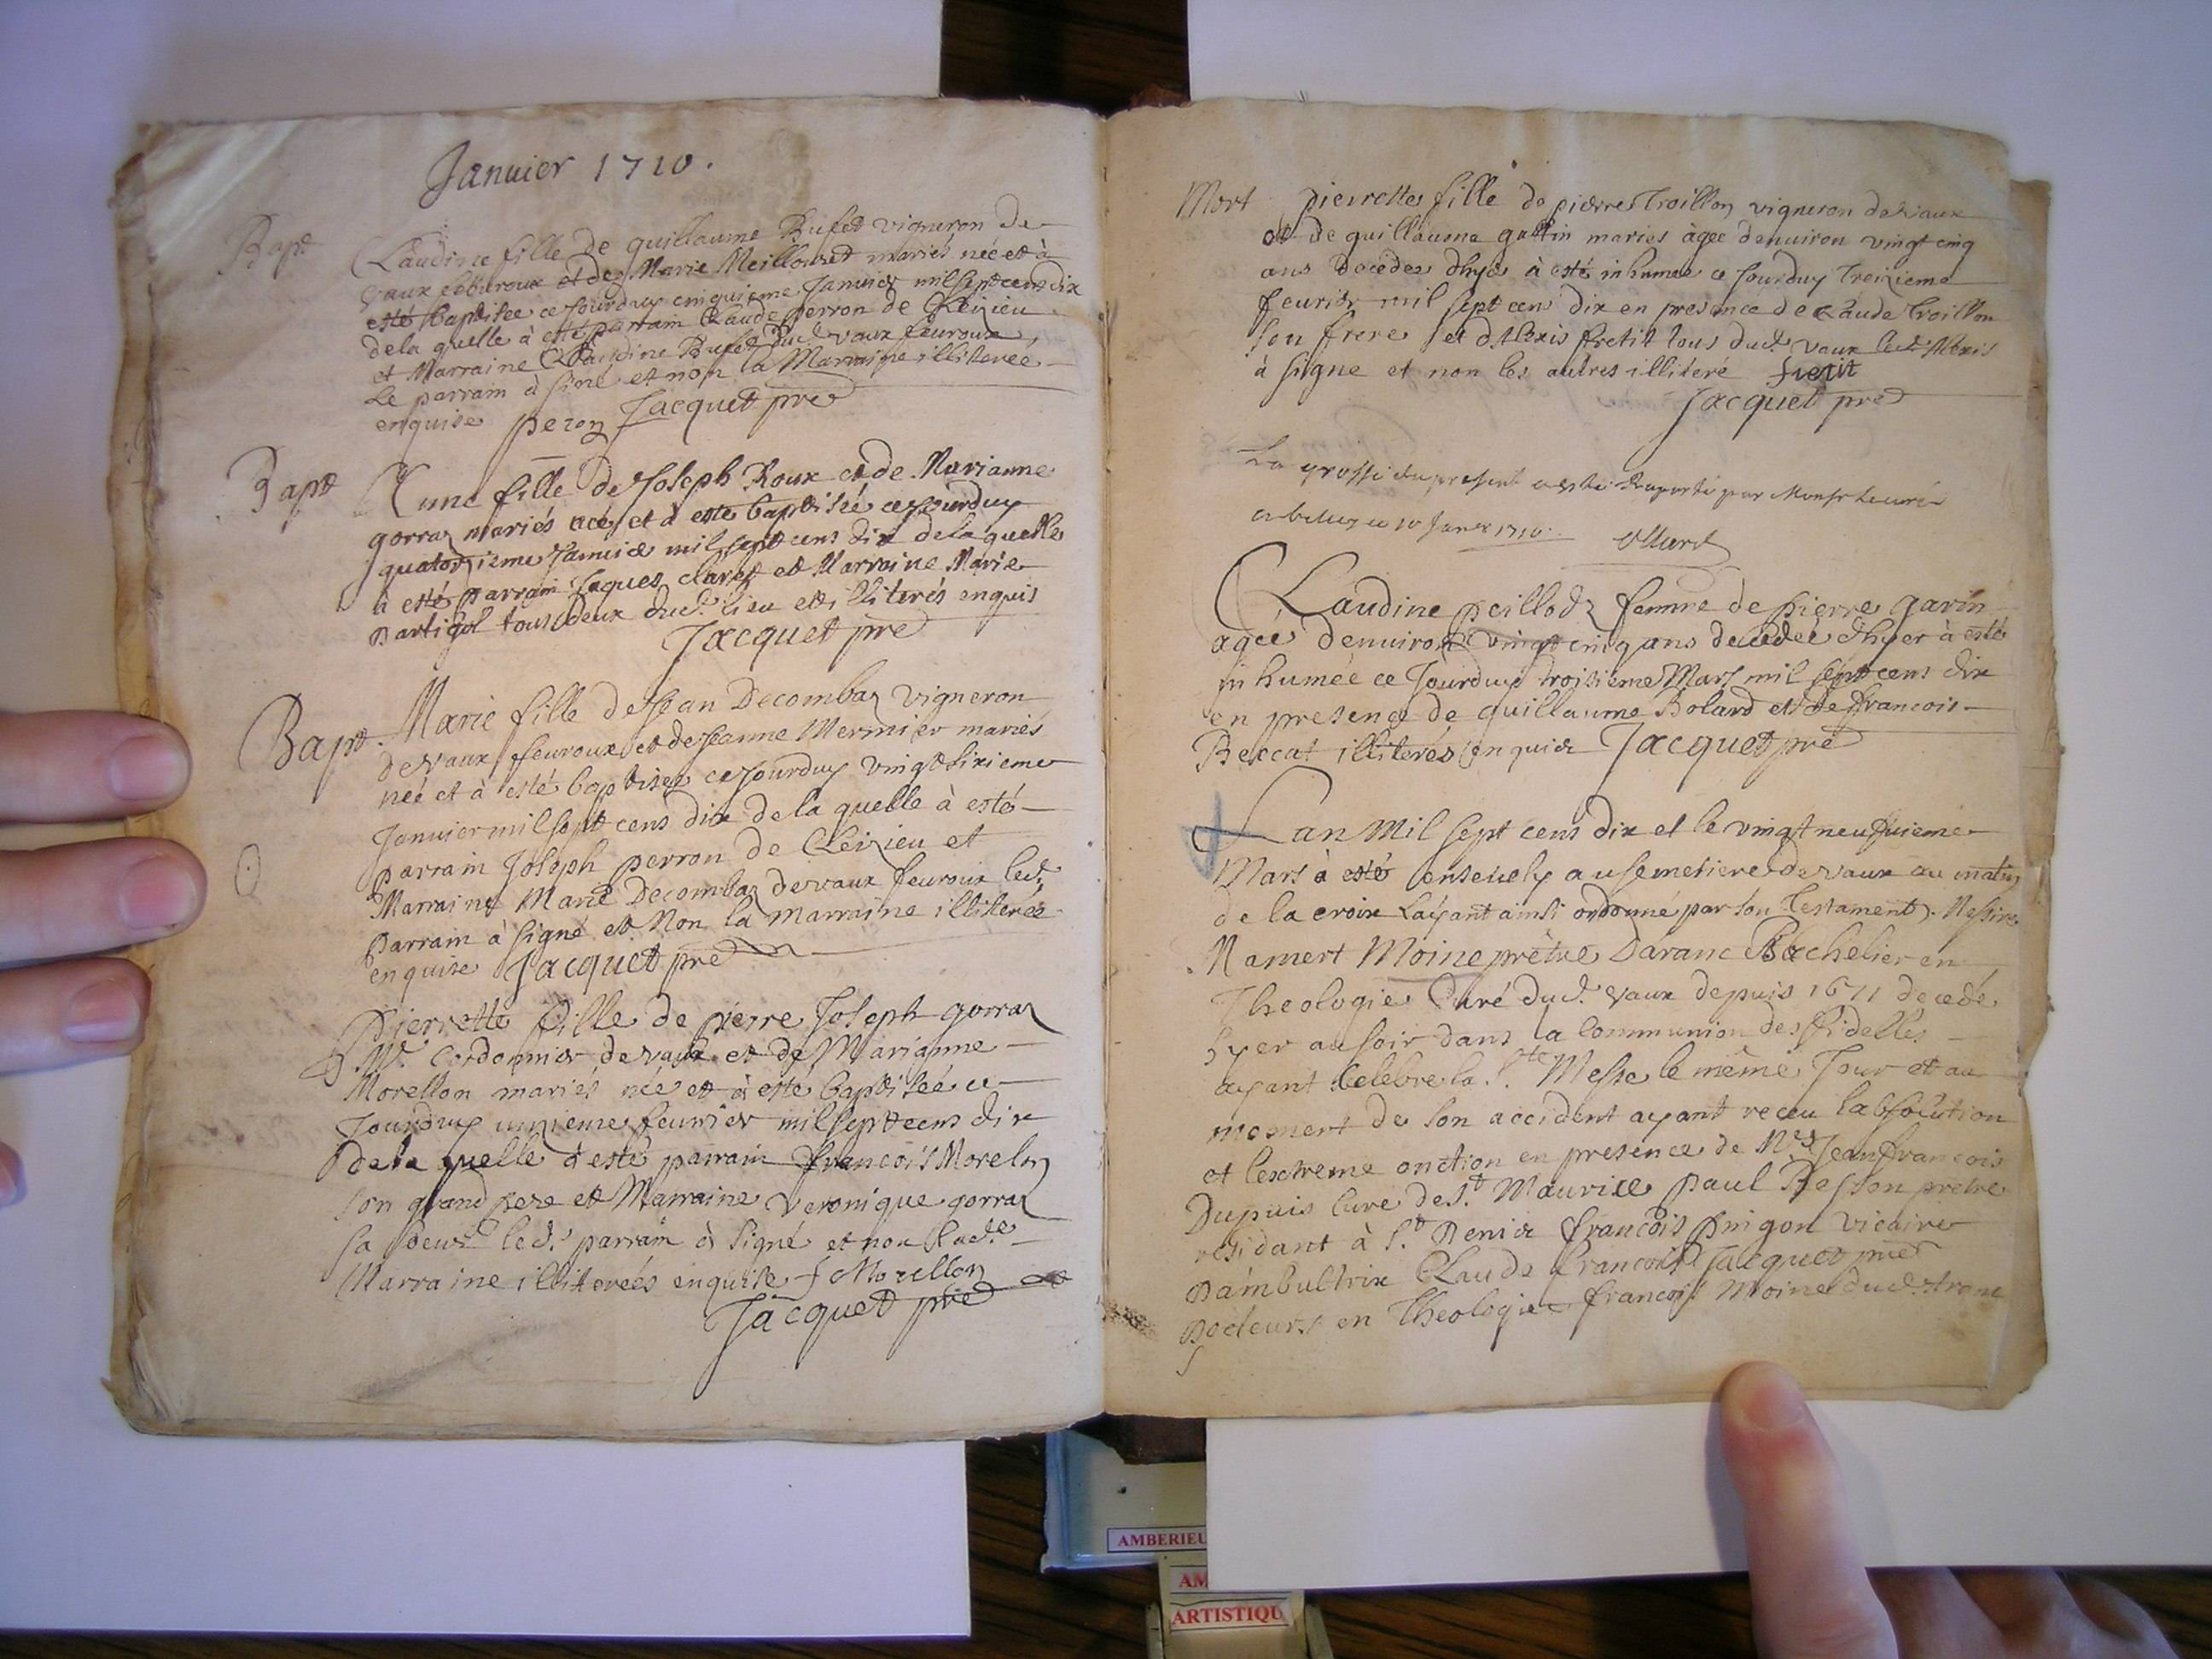 Januier 1710.
Bapt Claudine fille de guillaume Bufet vigneron de
vaux febvroux et de Marie Meillouret mariés née et à
esté baptisee ce Jourduy cinquieme Januier mil sept cens dix
dela quelle à esté parrain Claude perron de Cleizieu
et Marraine Claudine Bufet dud. vaux feuroux
Le parrain à signé et non la Marraine illiteree
enquise peron Jacquet pre
Bapt une fille de Joseph Roux et de Marianne
gorraz mariés née et à esté baptisée ce Jourduy
quatorzieme Januier mil sept cens dix dela quelle
à esté parrain Jaques claret et Marraine Marie
partigol tous deux dud. lieu et illiterés enquis
Jacquet pre
Bapt. Marie fille de Jean Decombaz vigneron
de vaux feuroux et de Jeanne Mermier mariés
neé et à esté baptisee ce Jourduy vingt sixieme
Januier mil sept cens dix de la quelle à esté
parrain Joseph perron de Cleizieu et
Marraine Marie Decombaz de vaux feuroux led.
parrain à signé et Non la marraine illiterée
enquise Jacquet pre
Pierrette fille de pierre Joseph gorraz
Mr. Cordonnier de vaux et de Marianne
Morellon mariés née et à esté baptisée ce
Jourduy unzieme feurier mil sept cens dix
de la quelle à esté parrain francois Morelon
son grand pere et Marraine Veronique gorraz
sa soeur led. parrain à signé et non lad.e
Marraine illitereés enquise f Morellon
Jacquet pre
Mort pierrette fille de pierre Troillon vigneron de vaux
et de guillauma guttin mariés âgee denuiron vingt cinq
ans decedee dhyer à esté inhumee ce Jourduy Treizieme
feurier mil sept cens dix en presence de Claude Troillon
son frere et dAlexis fretit tous dud. vaux led. Alexis
à signe et non les autres illiteré fretit
Jacquet pre
La grosse du present a este Raporté par Monsr le curé
a belley ce 10 Janer 1710.
Claudine peillod femme de pierre garin
agée denuiron vingt cinq ans decedeé dhyer à esté
inhumée ce Jourduy troisieme Mars mil sept cens dix
en presence de guillaume Bolard et de francois
Beccat illiterés enquis Jacquet pre
Lan mil sept cens dix et le vingt neufuieme
Mars à esté enseuely au semetiere de vaux au matin
de la croix Layant ainsi ordonné par son Testament. Messire
Mamert Moine prêtre Daranc Bachelier en
Theologie Curé dud. vaux depuis 1671 decedé
hyer au soir dans la Communion des fidelles
ayant Celebre la s.te Messe le même Jour et au
moment de son accident ayant receu labsolution
et lextreme onction en presence de Mre Jean francois
Dupuis Curé de s.t Maurice paul Besson prêtre
residant à s.t Denis francois pingon vicaire
Dambultrix Claude francois Jacquet pre
Docteurs en Theologie francois Moine dud. Aranc
AMBERIEU
AM
ARTISTIQU